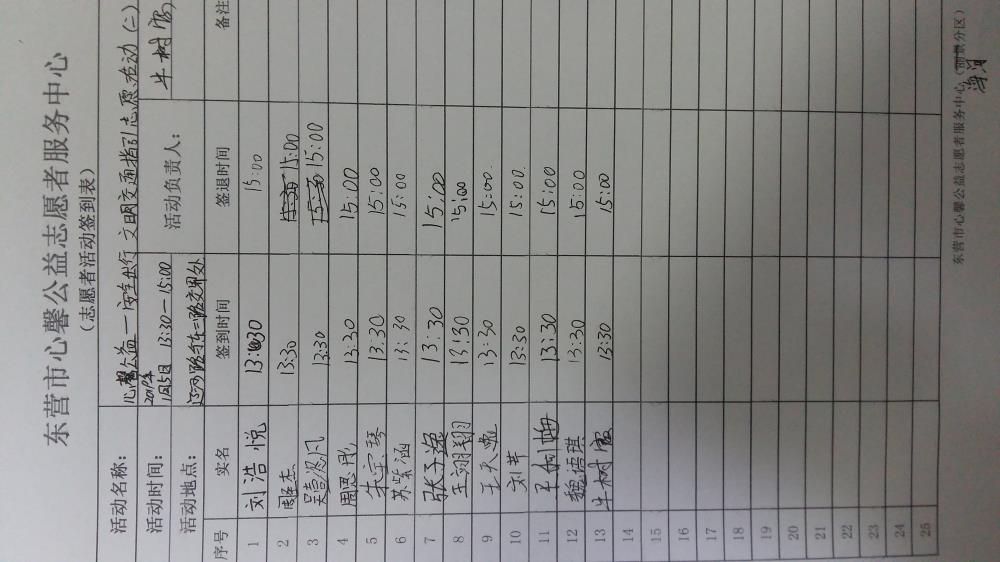 东营市心馨公益志愿者服务中心
（志愿者活动签到表）
活动名称： 心馨公益——安全出行 文明交通指引志愿活动（二）
活动时间： 2019年1月5日 13:30—15:00 活动负责人： 牛树霞
活动地点： 路与东二路交界处
序号 实名 签到时间 签退时间 备注
1 刘浩悦 13:30 15:00
2 周钰杰 13:30 15:00
3 吴 凤 13:30 15:00
4 周恩彤 13:30 15:00
5 朱宝琴 13:30 15:00
6 苏紫涵 13:30 15:00
7 张子涵 13:30 15:00
8 王翊翔 13:30 15:00
9 王天 13:30 15:00
10 刘芊 13:30 15:00
11 王树梅 13:30 15:00
12 魏语琪 13:30 15:00
13 牛树霞 13:30 15:00
14
15
16
17
18
19
20
21
22
23
24
25
东营市心馨公益志愿者服务中心（ 分区）